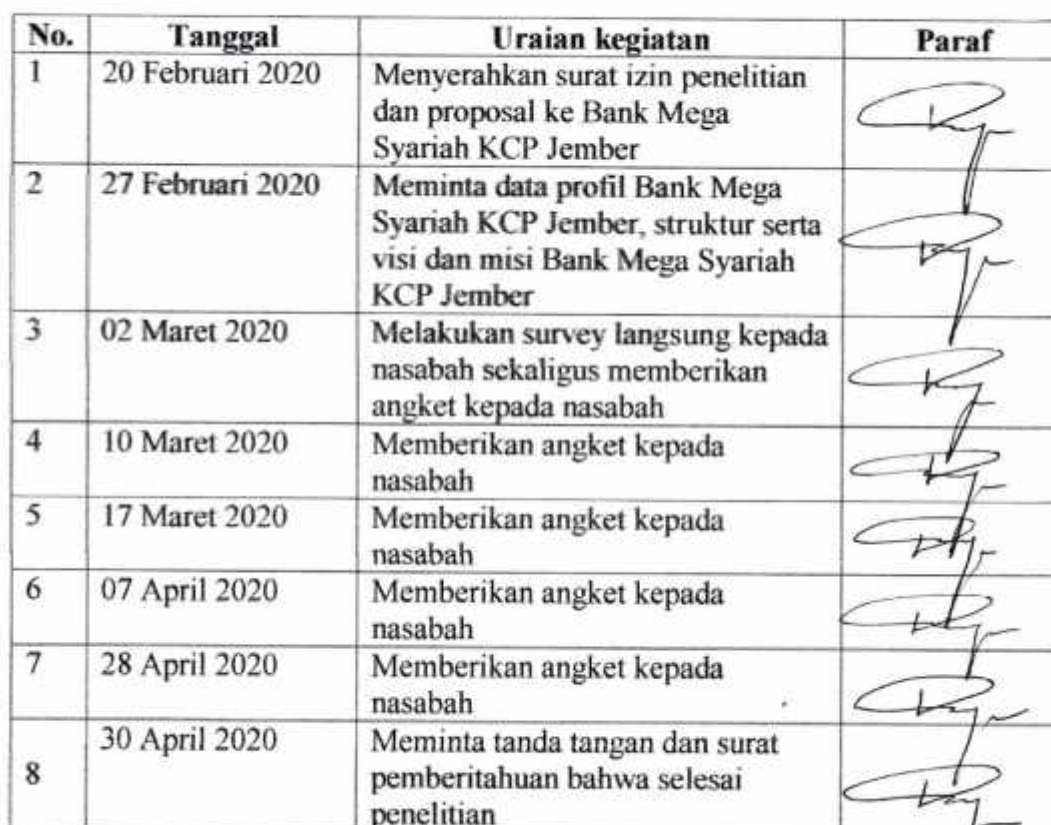 No. Tanggal Uraian kegiatan Paraf
1 20 Februari 2020 Menyerahkan surat izin penelitian
dan proposal ke Bank Mega
Syariah KCP Jember
2 27 Februari 2020 Meminta data profil Bank Mega
Syariah KCP Jember, struktur serta
visi dan misi Bank Mega Syariah
KCP Jember
3 02 Maret 2020 Melakukan survey langsung kepada
nasabah sekaligus memberikan
angket kepada nasabah
4 10 Maret 2020 Memberikan angket kepada
nasabah
5 17 Maret 2020 Memberikan angket kepada
nasabah
6 07 April 2020 Memberikan angket kepada
nasabah
7 28 April 2020 Memberikan angket kepada
nasabah
30 April 2020 Meminta tanda tangan dan surat
8 pemberitahuan bahwa selesai
penelitian